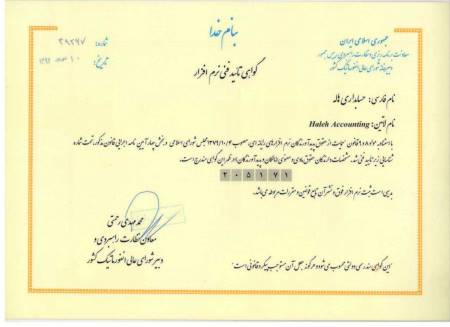 بنام خدا
جمهوری اسلامی ایران
معاونت برنامه ریزی و نظارت راهبردی رییس جمهور
دبیرخانه شورای عالی انفورماتیک کشور
شماره:
تاریخ:
گواهی تائید فنی نرم افزار
نام فارسی: حسابداری هاله
نام لاتین: Haleh Accounting
با استناد مواد ۸ و ۹ قانون حمایت از حقوق پدیدآورندگان نرم افزارهای رایانه ای، مصوب ۱۳۷۹/۱۰/۰۴ مجلس شورای اسلامی و بخش چهار آیین نامه اجرایی قانون مذکور، تحت شماره
شناسایی زیر تایید فنی شد. مشخصات دارندگان حقوق مادی و معنوی مالکان و پدیدآورندگان در ظهر این گواهی مندرج است.
۲۰۵۱۷۱
بدیهی است ثبت نرم افزار فوق و نشر آن تابع قوانین و مقررات مربوطه می باشد.
محمد مهدی رحمتی
معاون نظارت راهبردی و
دبیر شورای عالی انفورماتیک کشور
این گواهی سند رسمی دولتی محسوب می شود و هرگونه جعل آن مستوجب پیگرد قانونی است.